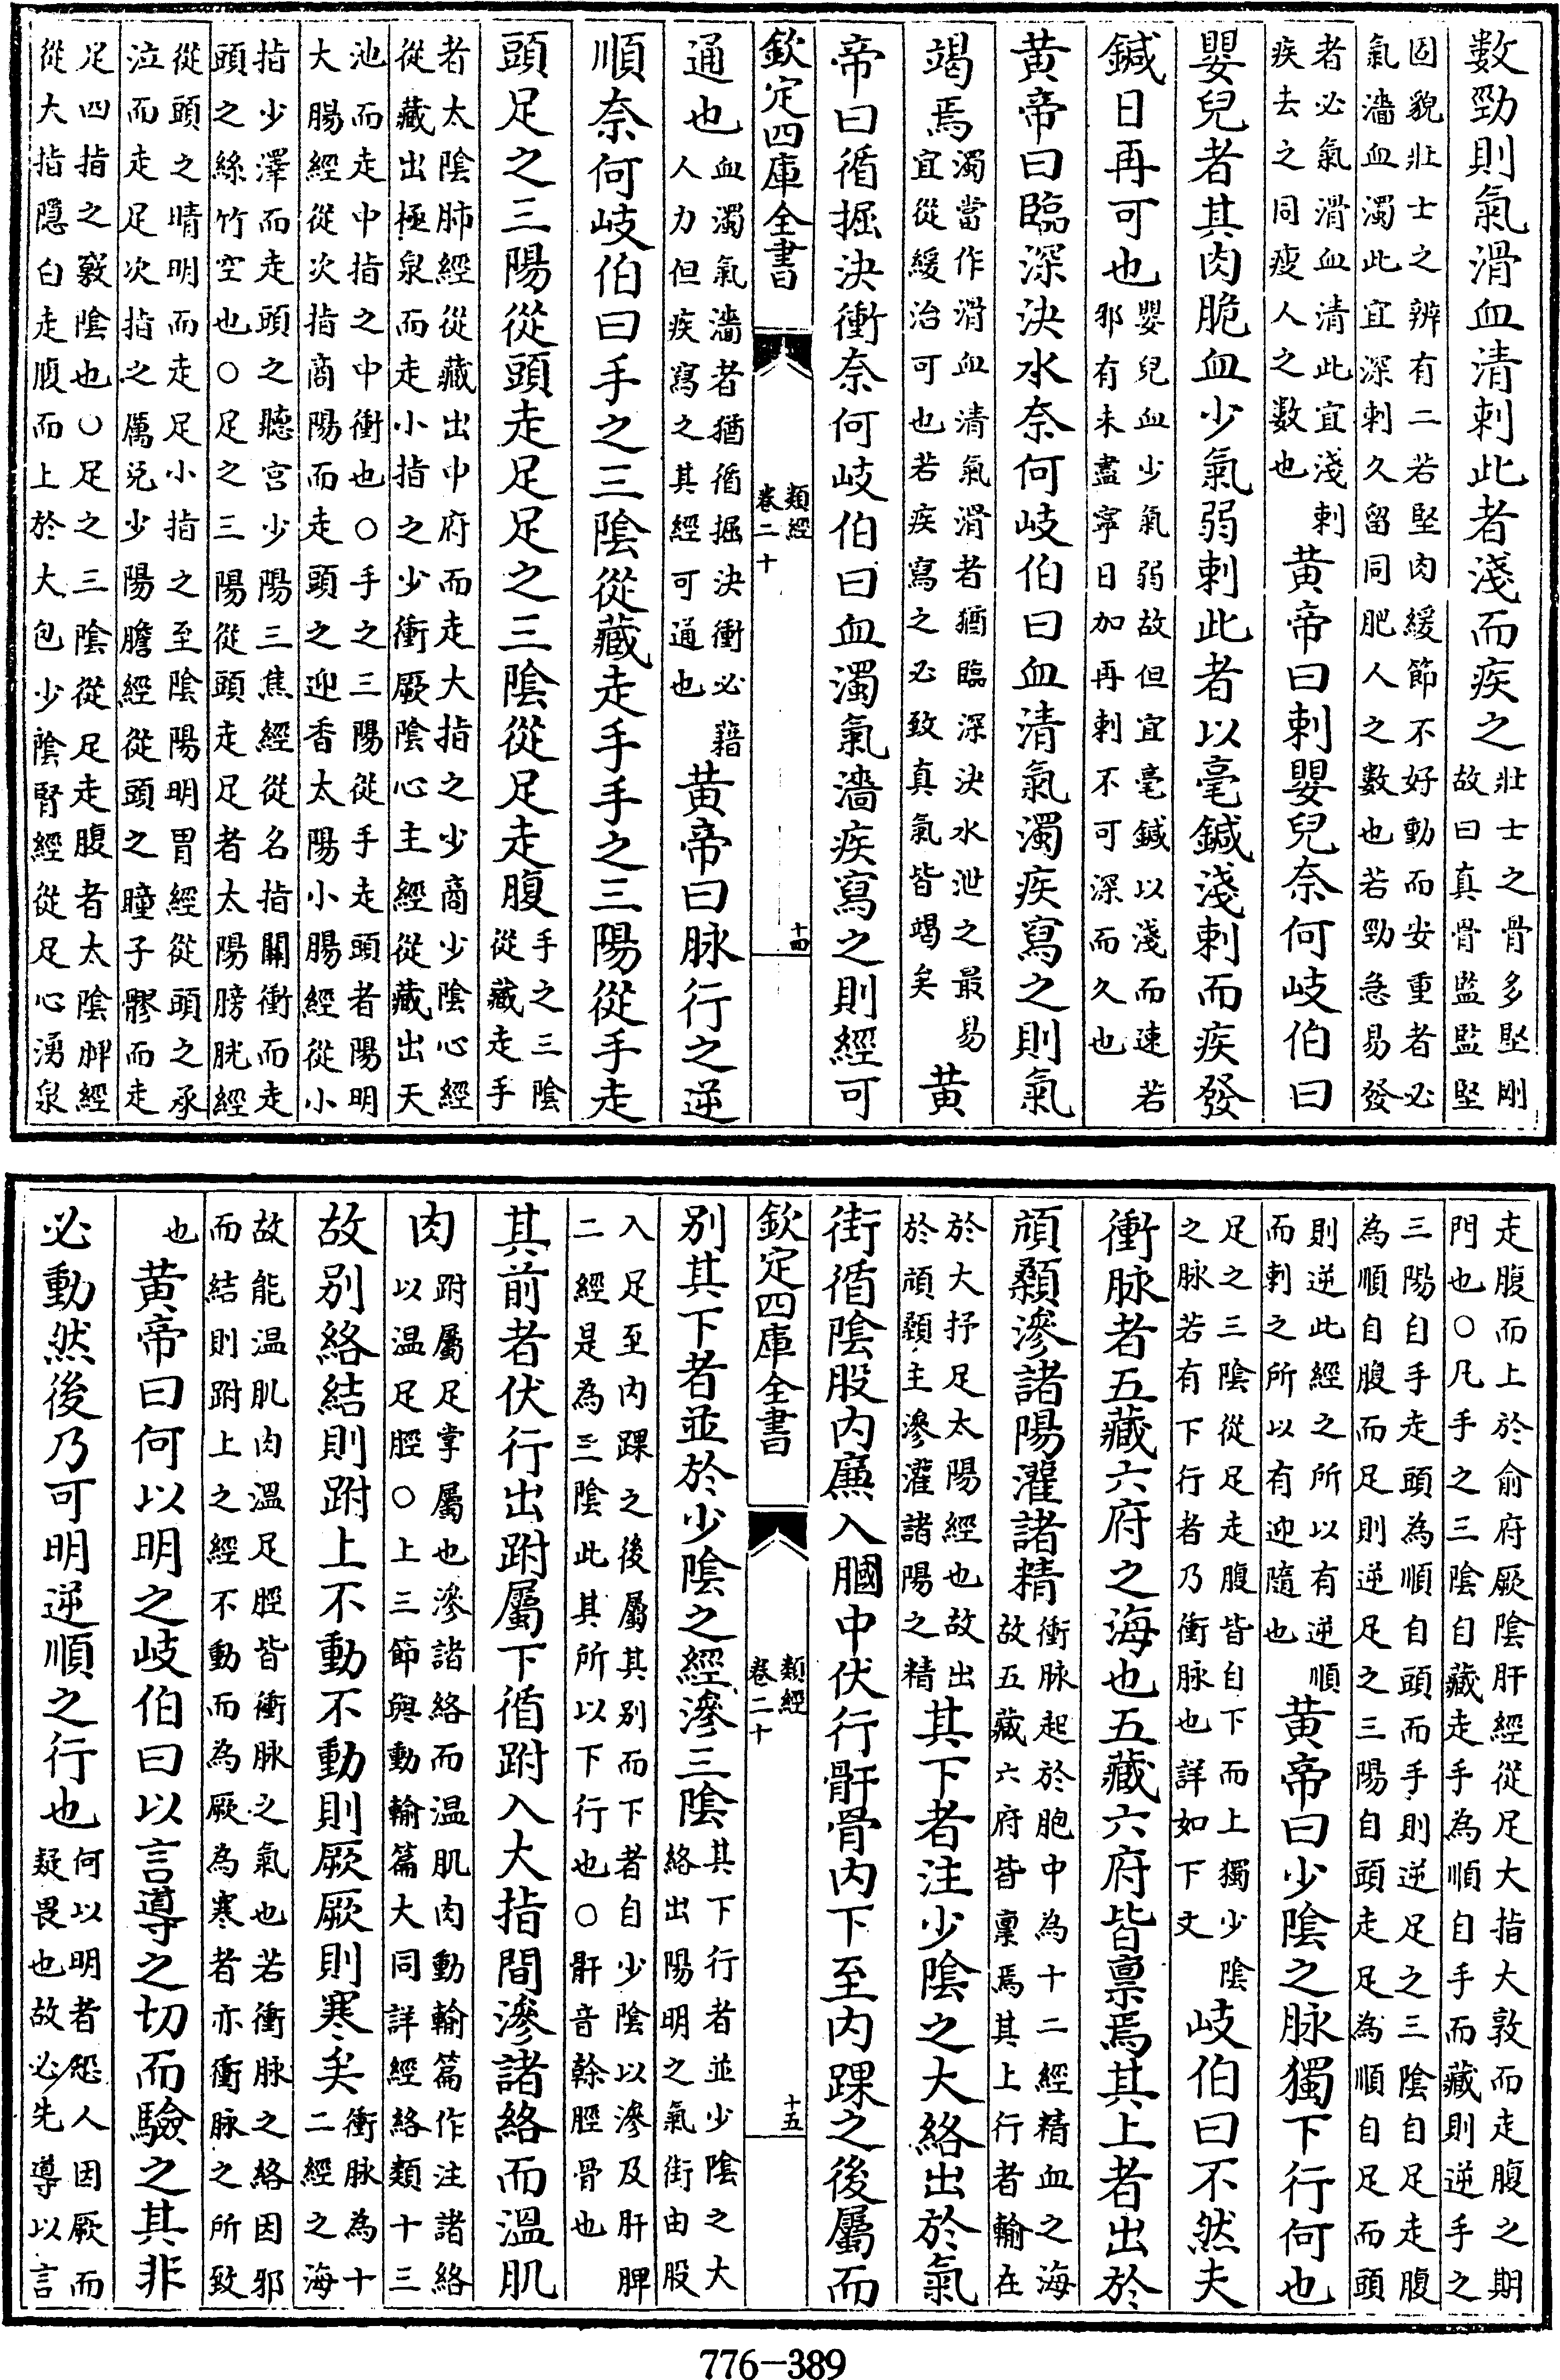 數勁則氣滑血清刺此者淺而疾之
壯士之骨多堅剛
故曰真骨監監堅
固貌壯士之辨有二若堅肉緩節不好動而安重者必
氣濇血濁此宜深刺久留同肥人之數也若勁急易發
者必氣滑血清此宜淺刺
疾去之同瘦人之數也
黄帝曰刺嬰兒奈何岐伯曰
嬰兒者其肉脆血少氣弱刺此者以毫鍼淺刺而疾發
鍼日再可也
嬰兒血少氣弱故但宜毫鍼以淺而速若
邪有未盡寧日加再刺不可深而久也
黄帝曰臨深決水奈何岐伯曰血清氣濁疾寫之則氣
竭焉
濁當作滑血清氣滑者猶臨深決水泄之最易
宜從緩治可也若疾寫之必致真氣皆竭矣
黄
帝曰循掘決衝奈何岐伯曰血濁氣濇疾寫之則經可
欽定四庫全書
類經
卷二十
十四
通也
血濁氣濇者猶循掘決衝必藉
人力但疾寫之其經可通也
黄帝曰脉行之逆
順奈何岐伯曰手之三陰從藏走手手之三陽從手走
頭足之三陽從頭走足足之三陰從足走腹
手之三陰
從藏走手
者太陰肺經從藏出中府而走大指之少商少陰心經
從藏出極泉而走小指之少衝厥陰心主經從藏出天
池而走中指之中衝也○手之三陽從手走頭者陽明
大腸經從次指商陽而走頭之迎香太陽小腸經從小
指少澤而走頭之聽宮少陽三焦經從名指關衝而走
頭之絲竹空也○足之三陽從頭走足者太陽膀胱經
從頭之睛明而走足小指之至陰陽明胃經從頭之承
泣而走足次指之厲兌少陽膽經從頭之瞳子髎而走
足四指之竅陰也○足之三陰從足走腹者太陰脾經
從大指隱白走腹而上於大包少陰腎經從足心湧泉
走腹而上於俞府厥陰肝經從足大指大敦而走腹之期
門也○凡手之三陰自藏走手為順自手而藏則逆手之
三陽自手走頭為順自頭而手則逆足之三陰自足走腹
為順自腹而足則逆足之三陽自頭走足為順自足而頭
則逆此經之所以有逆順
而刺之所以有迎隨也
黄帝曰少陰之脉獨下行何也
足之三陰從足走腹皆自下而上獨少陰
之脉若有下行者乃衝脉也詳如下文
岐伯曰不然夫
衝脉者五藏六府之海也五藏六府皆禀焉其上者出於
頏顙滲諸陽灌諸精
衝脉起於胞中為十二經精血之海
故五藏六府皆禀焉其上行者輸在
於大抒足太陽經也故出
於頏顙主滲灌諸陽之精
其下者注少陰之大絡出於氣
街循陰股内廉入膕中伏行骭骨内下至内踝之後屬而
欽定四庫全書
類經
卷二十
十五
别其下者並於少陰之經滲三陰
其下行者並少陰之大
絡出陽明之氣街由股
入足至内踝之後屬其别而下者自少陰以滲及肝脾
二經是為三陰此其所以下行也○骭音幹脛骨也
其前者伏行出跗屬下循跗入大指間滲諸絡而溫肌
肉
跗屬足掌屬也滲諸絡而温肌肉動輸篇作注諸絡
以温足脛○上三節與動輸篇大同詳經絡類十三
故别絡結則跗上不動不動則厥厥則寒矣
衝脉為十
二經之海
故能温肌肉溫足脛皆衝脉之氣也若衝脉之絡因邪
而結則跗上之經不動而為厥為寒者亦衝脉之所致
也
黄帝曰何以明之岐伯曰以言導之切而驗之其非
必動然後乃可明逆順之行也
何以明者恐人因厥而
疑畏也故必先導以言
776-389